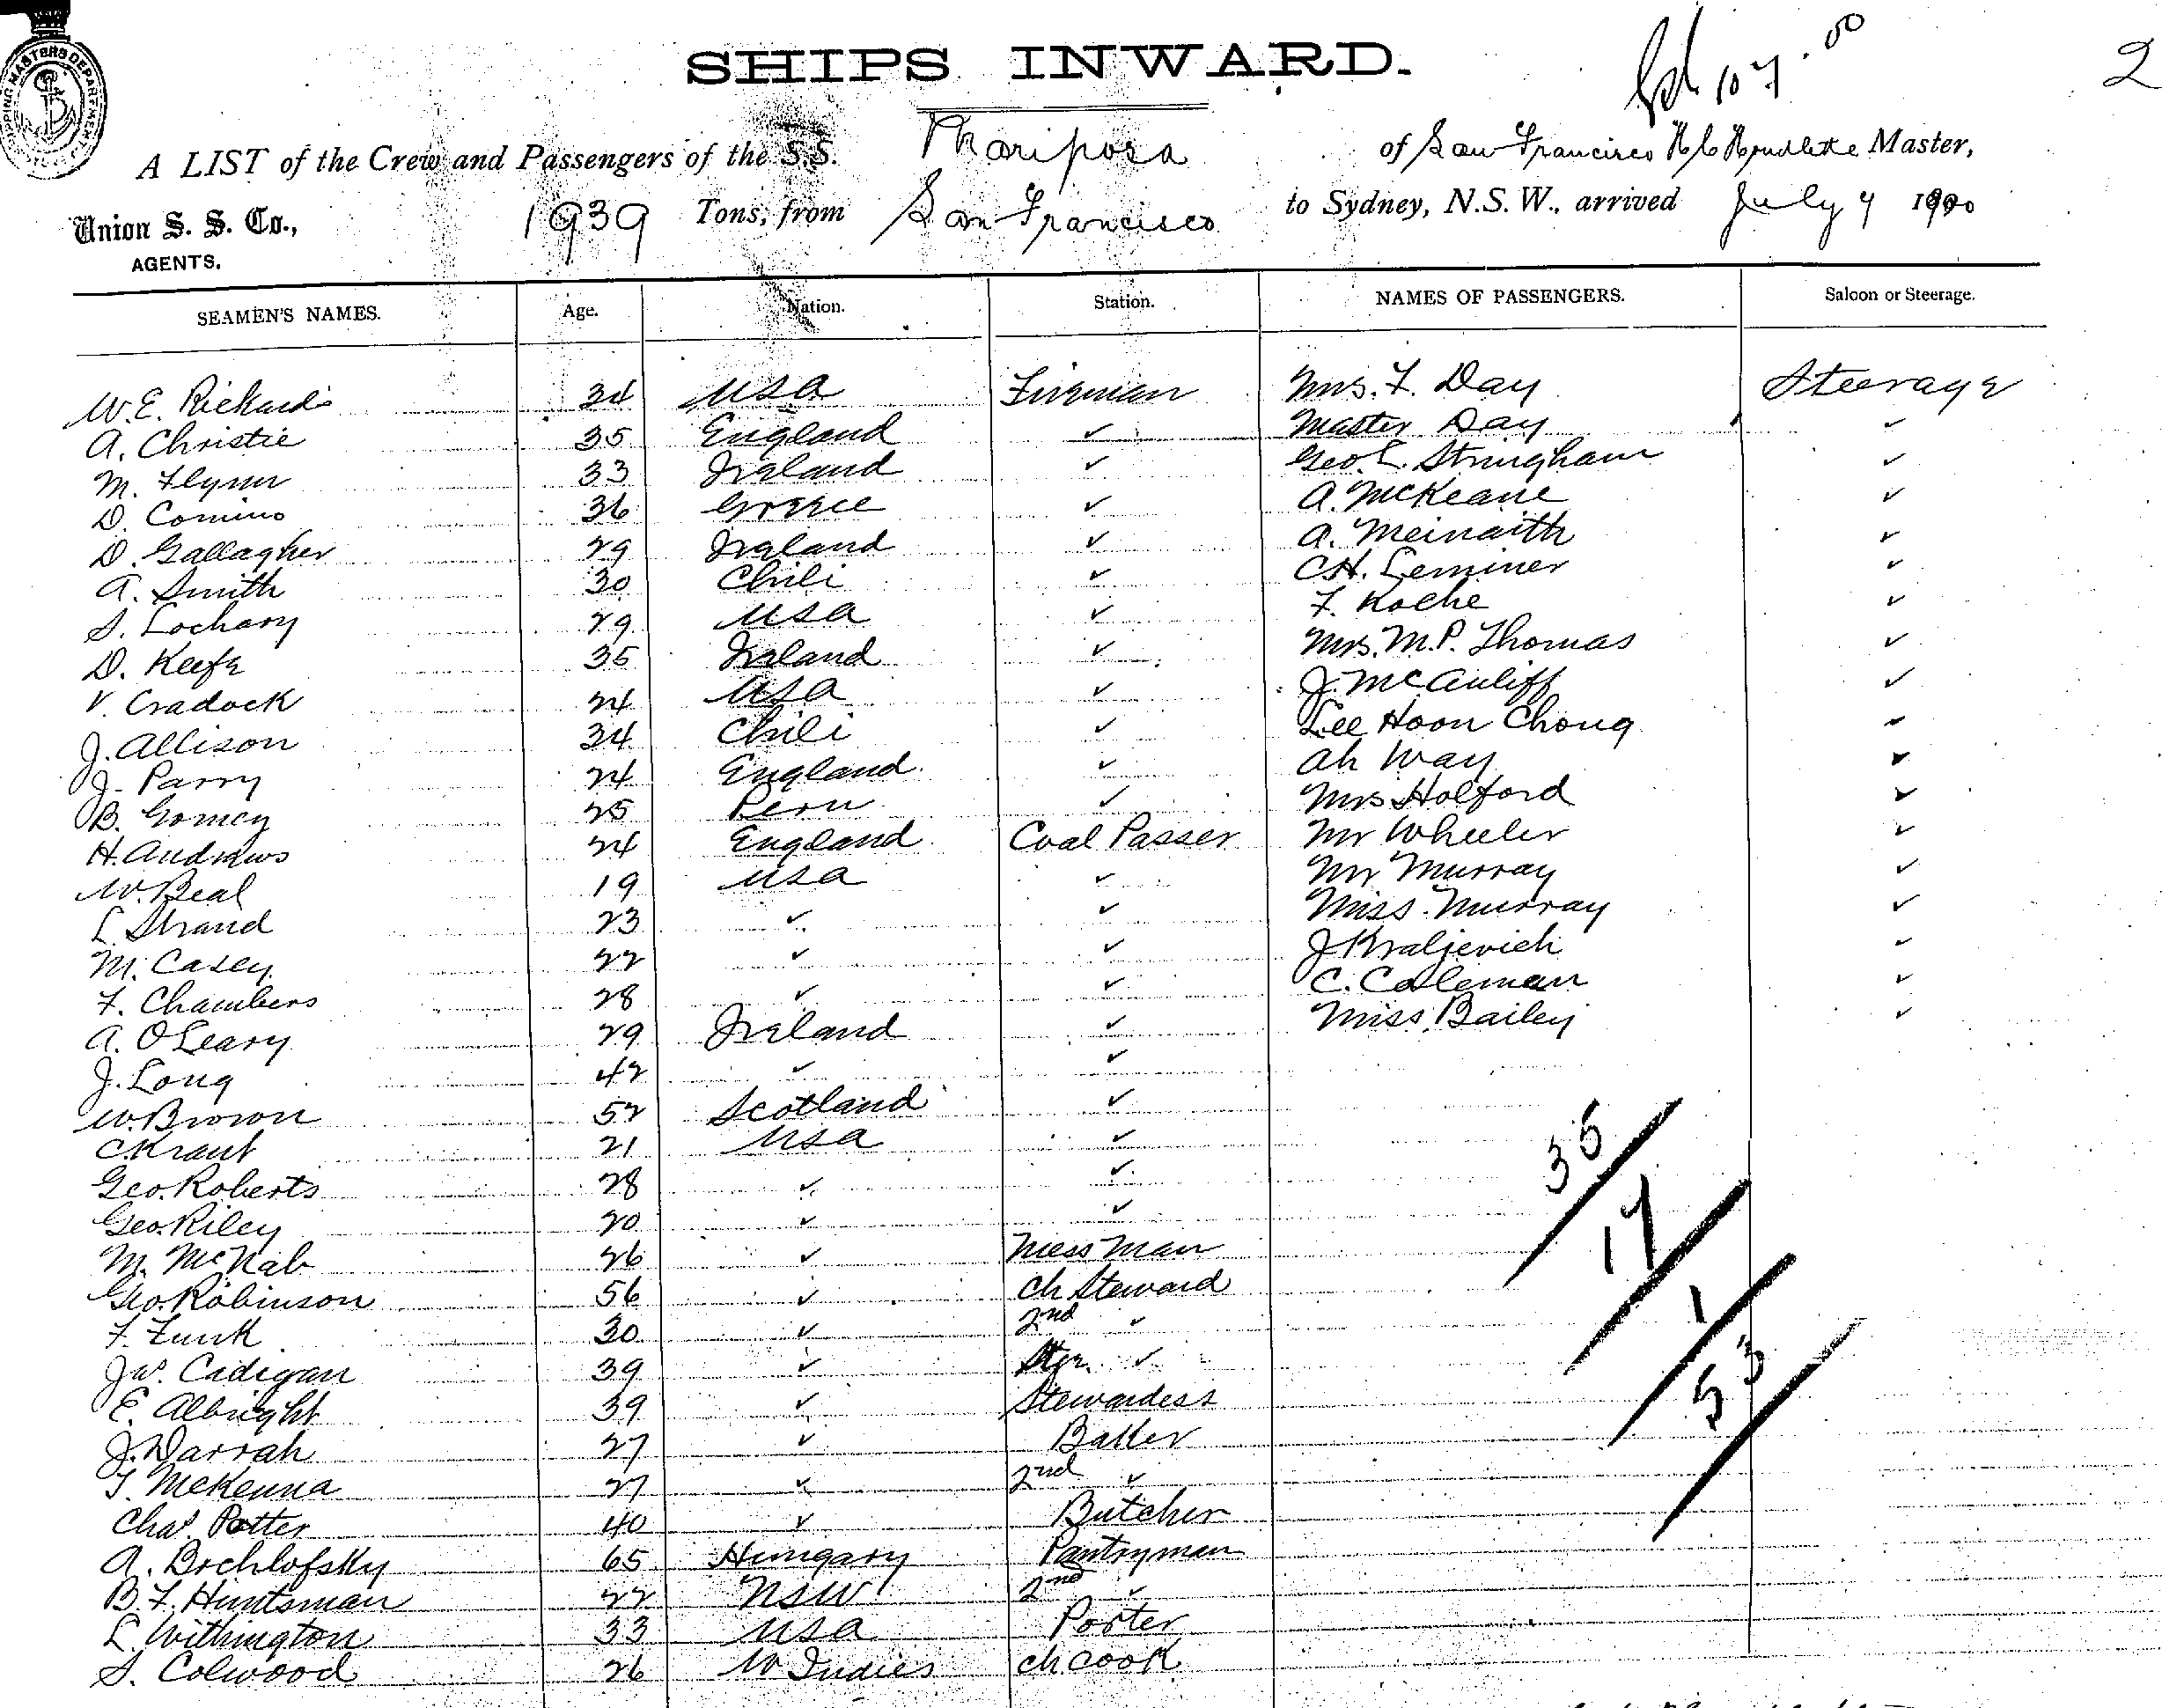 SHIPS INWARD.
2
A LIST of the Crew and Passengers of the S.S. Mariposa of San Francisco Master,
Union S. S. Co., 1939 Tons, from San Francisco to Sydney, N.S.W., arrived July 1900
AGENTS.
SEAMEN'S NAMES. Age. Nation. Station. NAMES OF PASSENGERS. Saloon or Steerage.
W. E. Rickards 34 USA Fireman Mrs. F. Day Steerage
A. Christie 35 England ✓ Master Day ✓
M. Flynn 33 Ireland ✓ Geo. L. Stringham ✓
D. Comino 36 Greece ✓ A. McKeane ✓
D. Gallagher 29 Ireland ✓ A. Meinaith ✓
A. Smith 30 Chili ✓ CH. Leminer ✓
S. Lochary 29 USA ✓ F. Roche ✓
D. Keefe 35 Ireland ✓ Mrs. M. P. Thomas ✓
V. Cradock 24 USA ✓ J. McAuliff ✓
J. Allison 34 Chili ✓ Lee Hoon Chong ✓
J. Parry 24 England ✓ Ah Way ✓
B. Gomey 25 Peru ✓ Mrs Holford ✓
H. Andrews 24 England Coal Passer Mr Wheeler ✓
W. Beal 19 USA ✓ Mr Murray ✓
L Strand 23 ✓ ✓ Miss Murray ✓
M. Casey 22 ✓ ✓ J Kraljevich ✓
F. Chambers 28 ✓ ✓ C. Coleman ✓
A. O'Leary 29 Ireland ✓ Miss Bailey ✓
J. Long 42 ✓ ✓
W. Brown 52 Scotland ✓
C. Kraut 21 USA ✓
Geo. Roberts 28 ✓ ✓
Geo. Riley 20 ✓ ✓
M. McNab 26 ✓ Mess Man
Geo. Robinson 56 ✓ Ch Steward
F. Funk 30 ✓ 2nd ✓
Jas. Cadigan 39 ✓ Stge. ✓
E. Albright 39 ✓ Stewardess
J. Darrah 27 ✓ Baker
T. McKenna 27 ✓ 2nd ✓
Chas. Potter 40 ✓ Butcher
A. Bochlofsky 65 Hungary Pantryman
B. F. Huntsman 22 NSW 2nd ✓
L. Withington 33 USA Porter
S. Colwood 26 W Indies Ch Cook
35
17
1
53